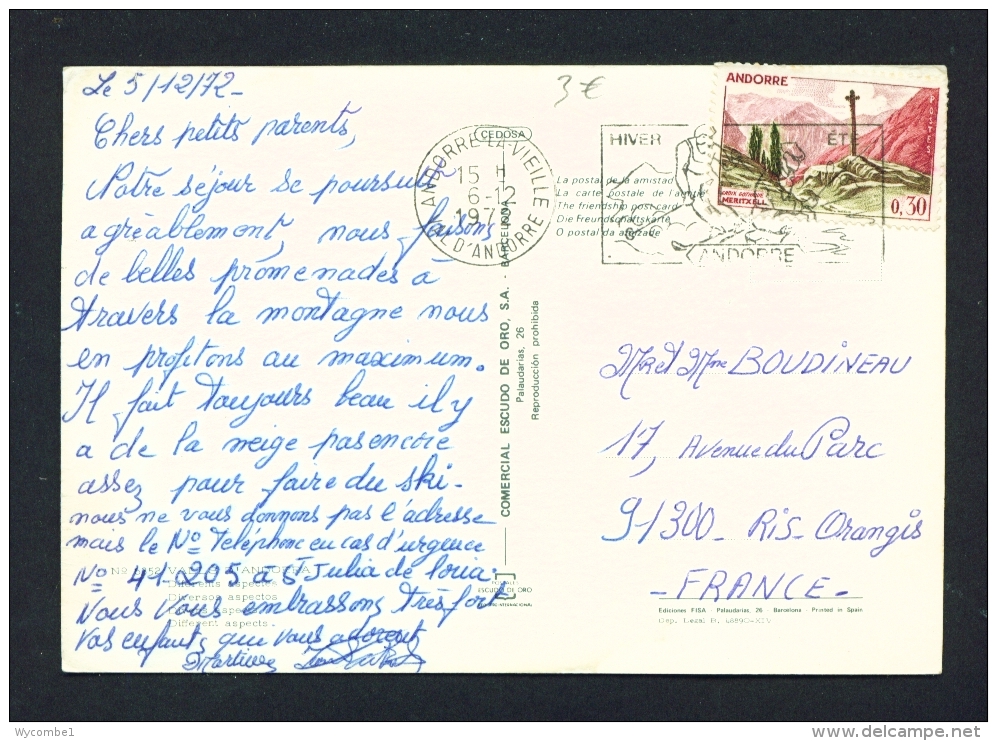 Le 5/12/72-
Chers petits parents,
Notre séjour se poursuit
agréablement, nous faisons
de belles promenades à
travers la montagne nous
en profitons au maximum.
Il fait toujours beau il y
a de la neige pas encore
assez pour faire du ski-
nous ne vous donnons pas l'adresse
mais le No Téléphone en cas d'urgence
No 41-205 à St Julia de Loria.
Nous vous embrassons très fort
vos enfants que vous adorent
Martine
3 €
ANDORRE-LA-VIEILLE
15 H
6-12
VAL D'ANDORRE
HIVER
ÉTÉ
ANDORRE
ANDORRE
POSTES
CROIX GOTHIQUE
MERITXELL
0,30
CEDOSA
La postal de la amistad
La carte postale de l'amitié
The friendship post card
Die Freundschaftskarte
O postal da amizade
COMERCIAL ESCUDO DE ORO, S.A. - BARCELONA
Palaudarias, 26
Reproducción prohibida
Mr et Mme BOUDINEAU
17, Avenue du Parc
91300 Ris-Orangis
-FRANCE-
VALLS D'ANDORRA
Diferents aspectes
Diversos aspectos
Different aspects.
ESCUDO DE ORO
Ediciones FISA - Palaudarias, 26 - Barcelona - Printed in Spain
Dep. Legal B.
Wycombe1
www.delcampe.net